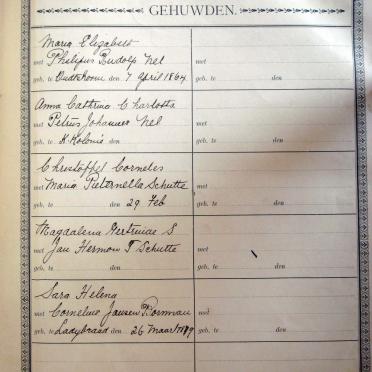 GEHUWDEN.
Maria Elizabeth
met Philippus Rudolf Nel met
geb. te Oudtshoorn den 7 April 1864 geb. te den
Anna Cathrina Charlotta
met Petrus Johannes Nel met
geb. te K. Kolonie den geb. te den
Christoffel Cornelis
met Maria Pieternella Schutte met
geb. te den 29 Feb geb. te den
Magdalena Gertruida S
met Jan Hermon T Schutte met
geb. te den geb. te den
Sara Helena
met Cornelius Jansen met
geb. te Ladybrand den 26 Maart geb. te den